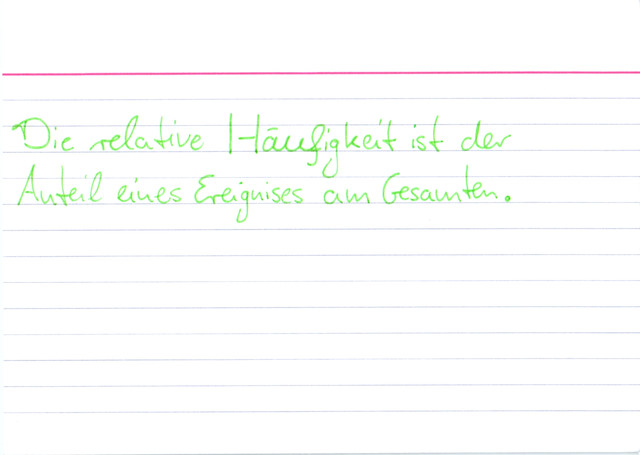 Die relative Häufigkeit ist der
Anteil eines Ereignises am Gesamten.